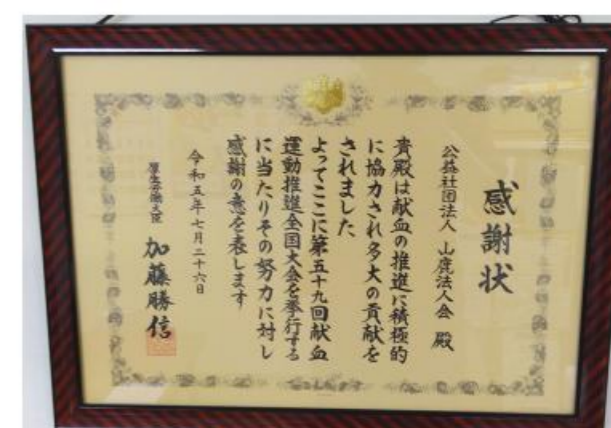 感謝状
公益社団法人 山鹿法人会 殿
貴殿は献血の推進に積極的
に協力され多大の貢献を
されました
よってここに第五十九回献血
運動推進全国大会を挙行する
に当たりその努力に対し
感謝の意を表します
令和五年七月二十六日
厚生労働大臣 加藤勝信